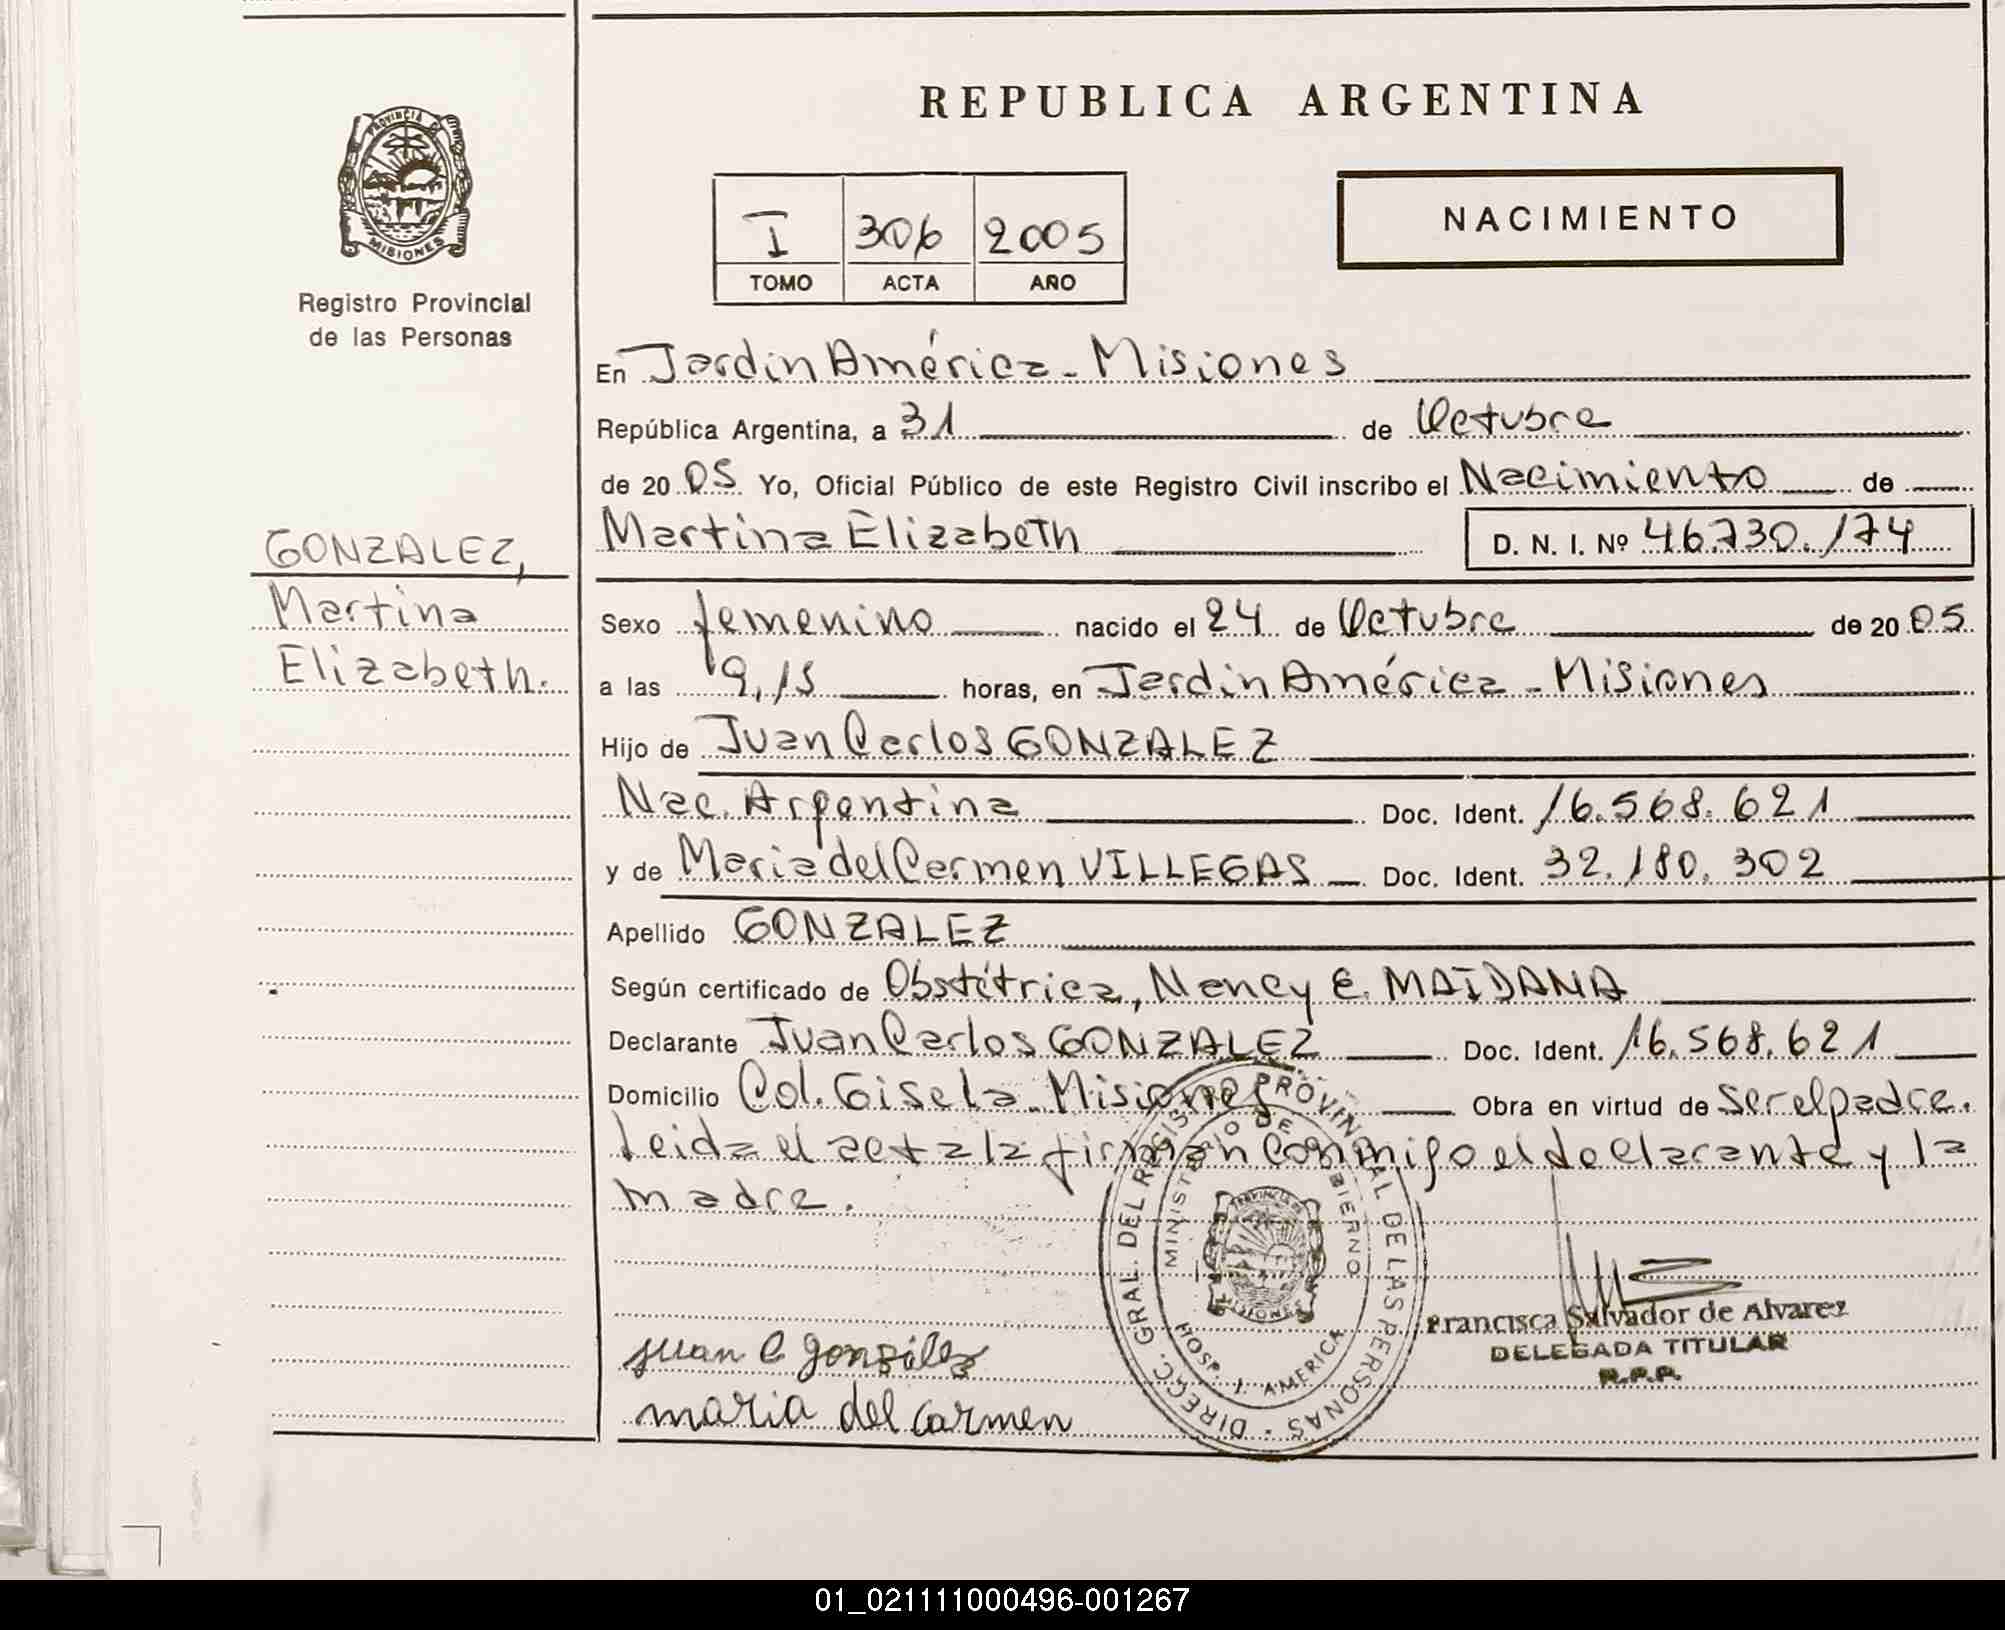 REPUBLICA ARGENTINA
PROVINCIA DE
MISIONES
Registro Provincial
de las Personas
I 306 2005
TOMO ACTA AÑO
NACIMIENTO
En Jardin América - Misiones
República Argentina, a 31 de Octubre
de 2005 Yo, Oficial Público de este Registro Civil inscribo el Nacimiento de
Martina Elizabeth D. N. I. Nº 46.730.174
GONZALEZ,
Martina
Elizabeth.
Sexo femenino nacido el 24 de Octubre de 2005
a las 9,15 horas, en Jardin América - Misiones
Hijo de Juan Carlos GONZALEZ
Nac. Argentina Doc. Ident. 16.568.621
y de Maria del Carmen VILLEGAS Doc. Ident. 32.180.302
Apellido GONZALEZ
Según certificado de Obstétrica, Nancy E. MAIDANA
Declarante Juan Carlos GONZALEZ Doc. Ident. 16.568.621
Domicilio Col. Gisela - Misiones Obra en virtud de ser el padre.
Leida el acta la firman conmigo el declarante y la
madre.
DIRECC. GRAL. DEL REGISTRO PROVINCIAL DE LAS PERSONAS
MINISTERIO DE GOBIERNO
HOSP. J. AMERICA
MISIONES
Francisca Salvador de Alvarez
DELEGADA TITULAR
R.P.P.
juan C gonzález
maria del carmen
01_021111000496-001267